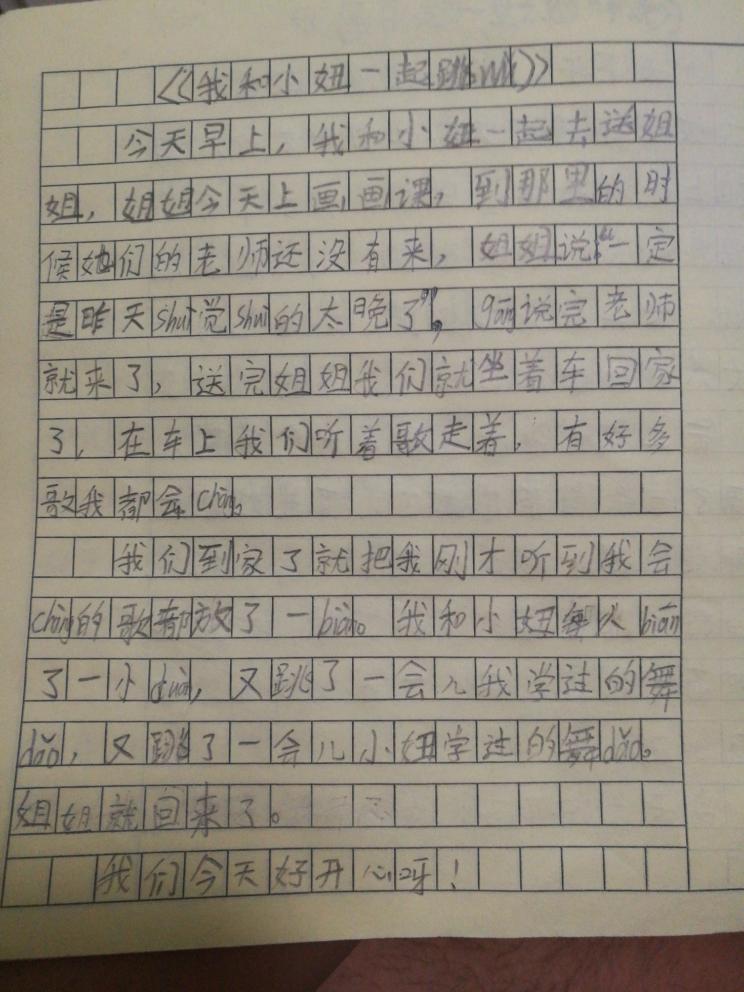 《我和小妞一起跳wǔ》
今天早上，我和小妞一起去送姐
姐，姐姐今天上画画课，到那里的时
候她们的老师还没有来，姐姐说：“一定
是昨天shuì觉shuì的太晚了”，gāng说完老师
就来了，送完姐姐我们就坐着车回家
了，在车上我们听着歌走着，有好多
歌我都会chàng。
我们到家了就把我刚才听到我会
chàng的歌都放了一biàn。我和小妞每人biān
了一小duàn，又跳了一会儿我学过的舞
dǎo，又跳了一会儿小妞学过的舞dǎo。
姐姐就回来了。
我们今天好开心呀！